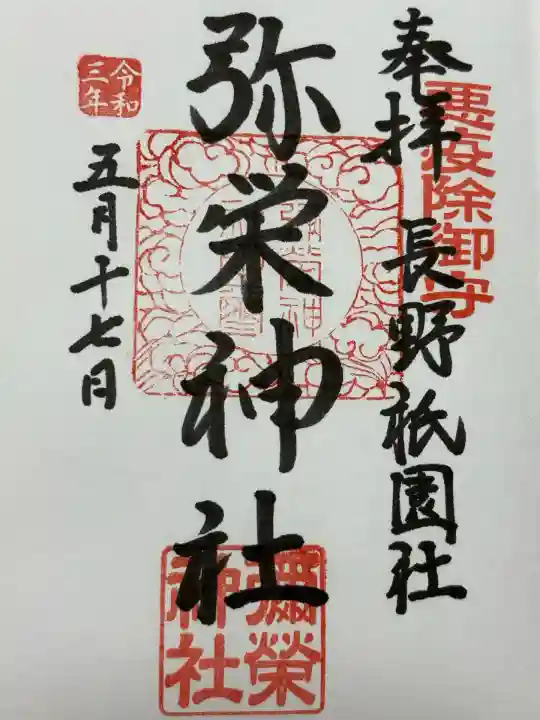 奉拝 長野祇園社
悪疫除御守
弥栄神社
令和
三年
五月十七日
彌榮
神社